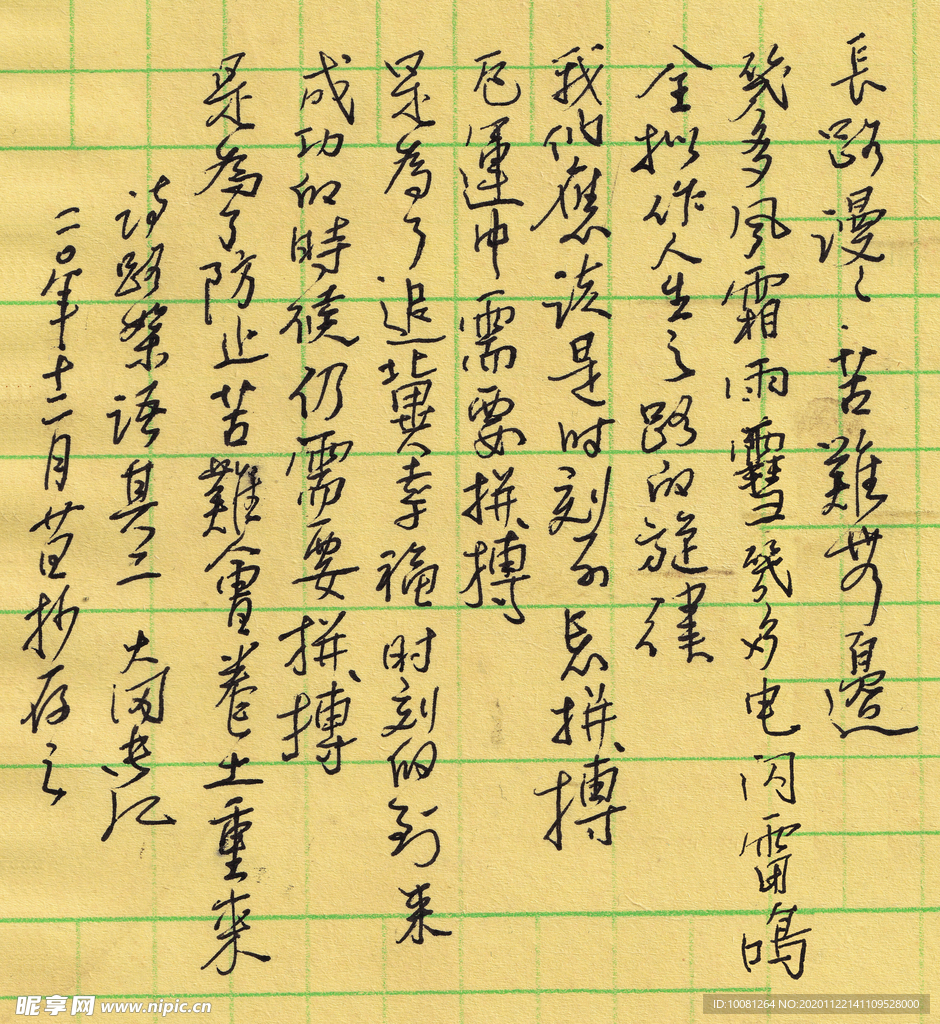 長路漫々苦難無邊
幾多風霜雨雪幾多电闪雷鳴
全拟作人生之路的旋律
我們應该是时刻不忘拼搏
厄運中需要拼搏
是為了退冀幸福时刻的到来
成功的時候仍需要拼搏
是為了防止苦難會卷土重来
詩路絮语其二 大国
二〇年十二月廿百抄存之
昵享网 www.nipic.cn
ID:10081264 NO:20201122141109528000